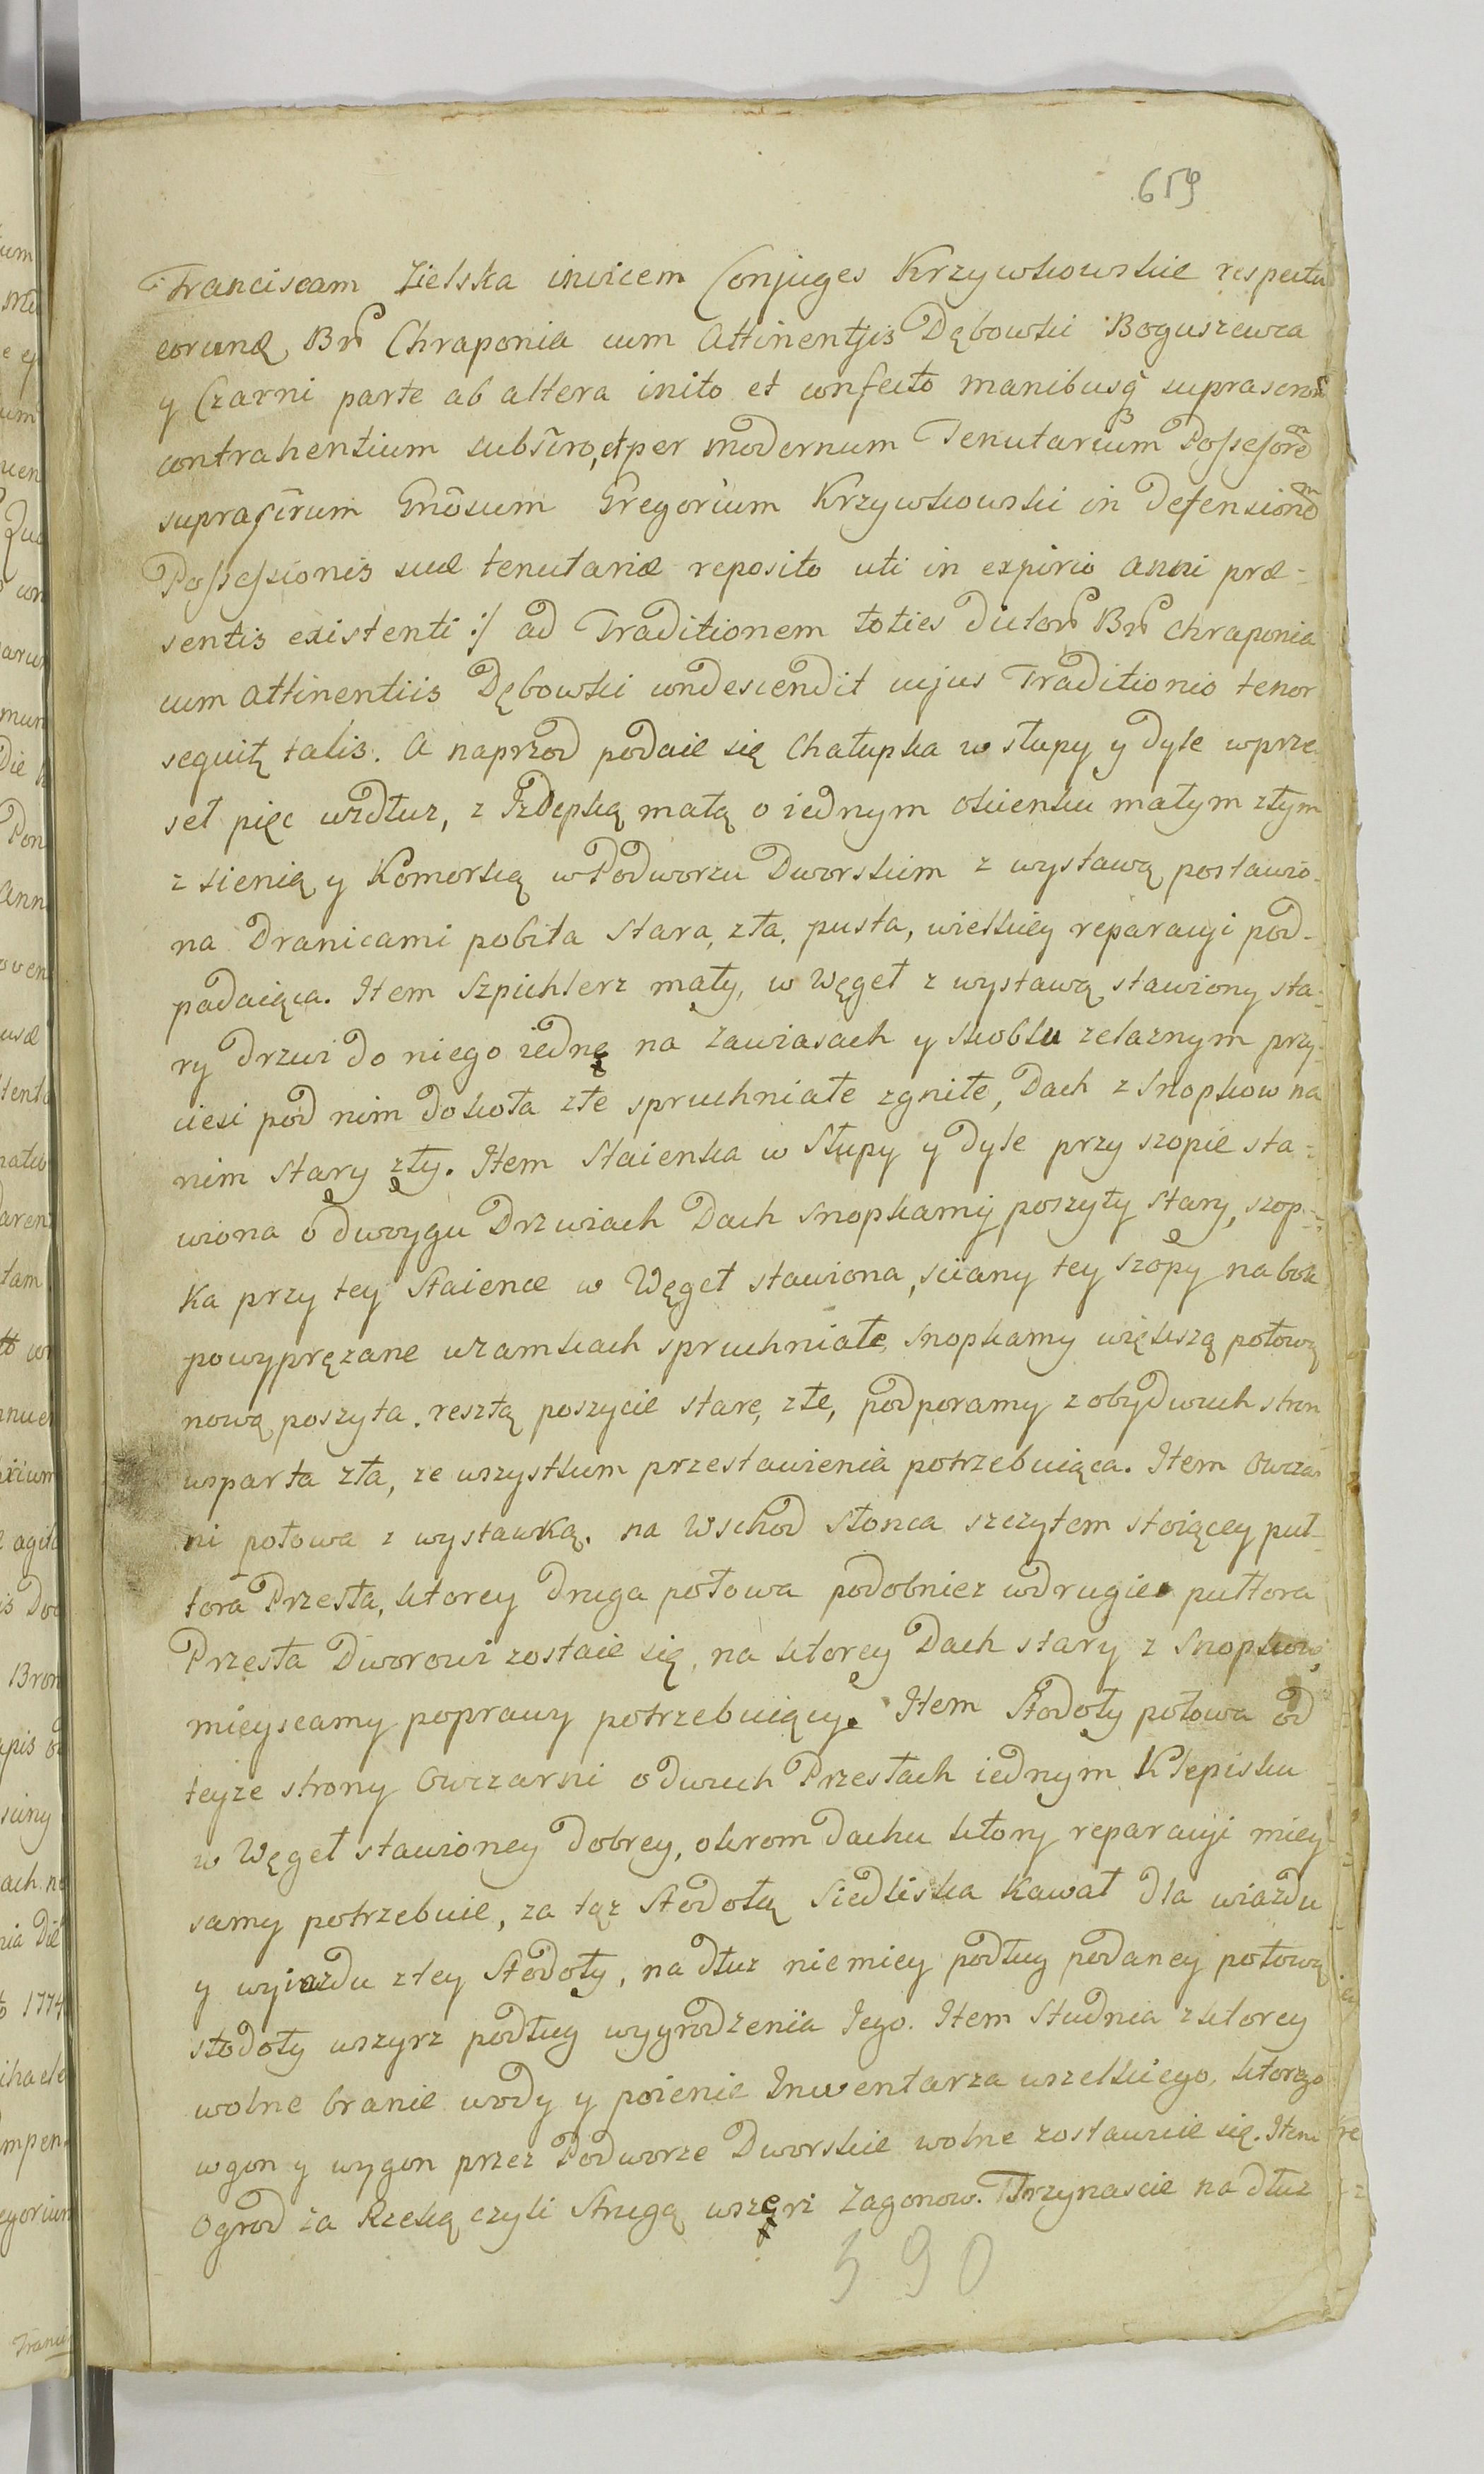 659
Franciscam Zielska invicem Conjuges Krzywkowskie respectu
eorund Brū Chraponia cum Attinentijs Dębowki Boguszewca
y Czarni parte ab altera inito et confecto manibusq̃ suprascrōr
contrahentium subscr̃o, et per modernum Tenutarium Possessorem
suprascr̃um Gnōsum Gregorium Krzywkowski in defensionem
Possessionis suæ tenutariæ reposito uti in expirio anni præ-
sentis existenti :/ ad Traditionem toties dictor̃ Br̃ chraponia
cum attinentiis Dębowki condescendit cujus Traditionis tenor
sequit̨ talis. A naprzod podaie się Chałupka w słupy y dyle wprze
seł pięc wzdłuz, z Izdepką małą o iednym okienku małym złym
z sienią y Komorką w Podworzu Dworskim z wystawą postawio-
na Dranicami pobita stara, zła, pusta, wielkiey reparacyi pod-
padaiąca. Item Szpichlerz mały, w Węgeł z wystawą stawiony sta-
ry drzwi do niego iedne na zawiasach y skoblu zelaznym przy-
ciesi pod nim dokoła złe spruchniałe zgniłe, Dach z snopkow na
nim stary zły. Item Staienka w Słupy y dyle przy szopie sta-
wiona o dwoygu Drzwiach Dach snopkamy poszyty stary, szop-
ka przy tey Staience w Węgeł stawiona, sciany tey szopy na bok
powyprężane w zamkach spruchniałe, snopkamy większą połową
nową poszyta, resztą poszycie stare, złe, podporamy z obydwuch stron
wsparta zła, ze wszystkim przestawienia potrzebuiąca. Item Owczar
ni połowa z wystawką. na Wschod słonca szczytem stoiącey puł-
tora Przęsła, ktorey druga połowa podobniez wdrugie pułtora
Przęsła Dworowi zostaie się, na ktorey Dach stary z Snopkow,
mieyscamy poprawy potrzebuiący. Item Stodoły połowa od
teyze strony Owczarni o dwuch Przesłach iednym Klepisku
w Węgeł stawioney dobrey, okrom dachu ktory reparacyi miey-
scamy potrzebuie, za tąz Stodołą Siedliska kawał dla wiazdu
y wyiazdu z tey Stodoły, na dłuz niemiey podług podaney połową
stodoły wszyrz podług wygrodzenia Jego. Item Studnia z ktorey
wolne branie wody y poienie Inwentarza wszelkiego, ktorego
wgon y wygon przez Podworze Dworskie wolne zostawuie się. Item
Ogrod za Rzeką czyli Strugą wszerz Zagonow. Trzynascie na dłuz
590